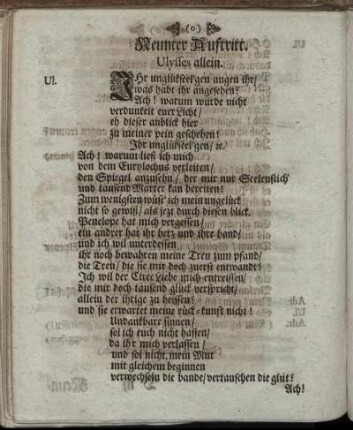 (o)
Neunter Auftritt.
Ulysses allein.
Ul. IHr unglükseelgen augen ihr/
was habt ihr angesehen?
Ach! warum wurde nicht
verdunkelt euer Licht/
eh dieser anblick hier
zu meiner pein geschehen?
Ihr unglükseel'gen/ ic.
Ach! warum ließ ich mich
von dem Eurylochus verleiten/
den Spiegel anzusehn/ der mir nur Seelenstich/
und tausend Marter kan bereiten!
Zum wenigsten wüst' ich mein ungelück
nicht so gewiß/ als jezt durch diesen blick.
Penelope hat mich vergessen/
ein andrer hat ihr herz und ihre hand/
und ich wil unterdessen
ihr noch bewahren meine Treu zum pfand/
die Treu/ die sie mir doch zuerst entwandt?
Ich wil der Circe Liebe mich entreissen/
die mir doch tausend glück verspricht/
allein der ihrige zu heissen?
und sie erwartet meine rück-kunft nicht!
Undankbare sinnen/
sol ich euch nicht hassen/
da ihr mich verlassen/
und sol nicht mein Mut
mit gleichem beginnen
verwechseln die bande/ vertauschen die glut?
Ach!